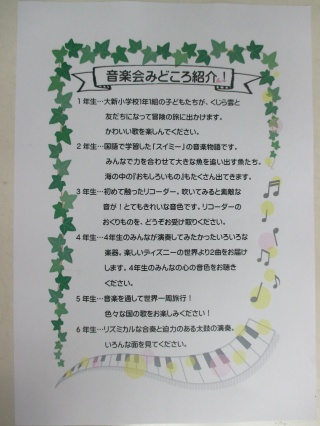 音楽会みどころ紹介！
1年生…大新小学校1年1組の子どもたちが、くじら雲と
友だちになって冒険の旅に出かけます。
かわいい歌を楽しんでください。
2年生…国語で学習した「スイミー」の音楽物語です。
みんなで力を合わせて大きな魚を追い出す魚たち。
海の中の『おもしろいもの』もたくさん出てきます。
3年生…初めて触ったリコーダー。吹いてみると素敵な
音が！とてもきれいな音色です。リコーダーの
おくりものを、どうぞお受け取りください。
4年生…4年生のみんなが演奏してみたかったいろいろな
楽器。楽しいディズニーの世界より2曲をお届け
します。4年生のみんなの心の音色をお聴き
ください。
5年生…音楽を通して世界一周旅行！
色々な国の歌をお楽しみください！
6年生…リズミカルな合奏と迫力のある太鼓の演奏。
いろんな面を見てください。